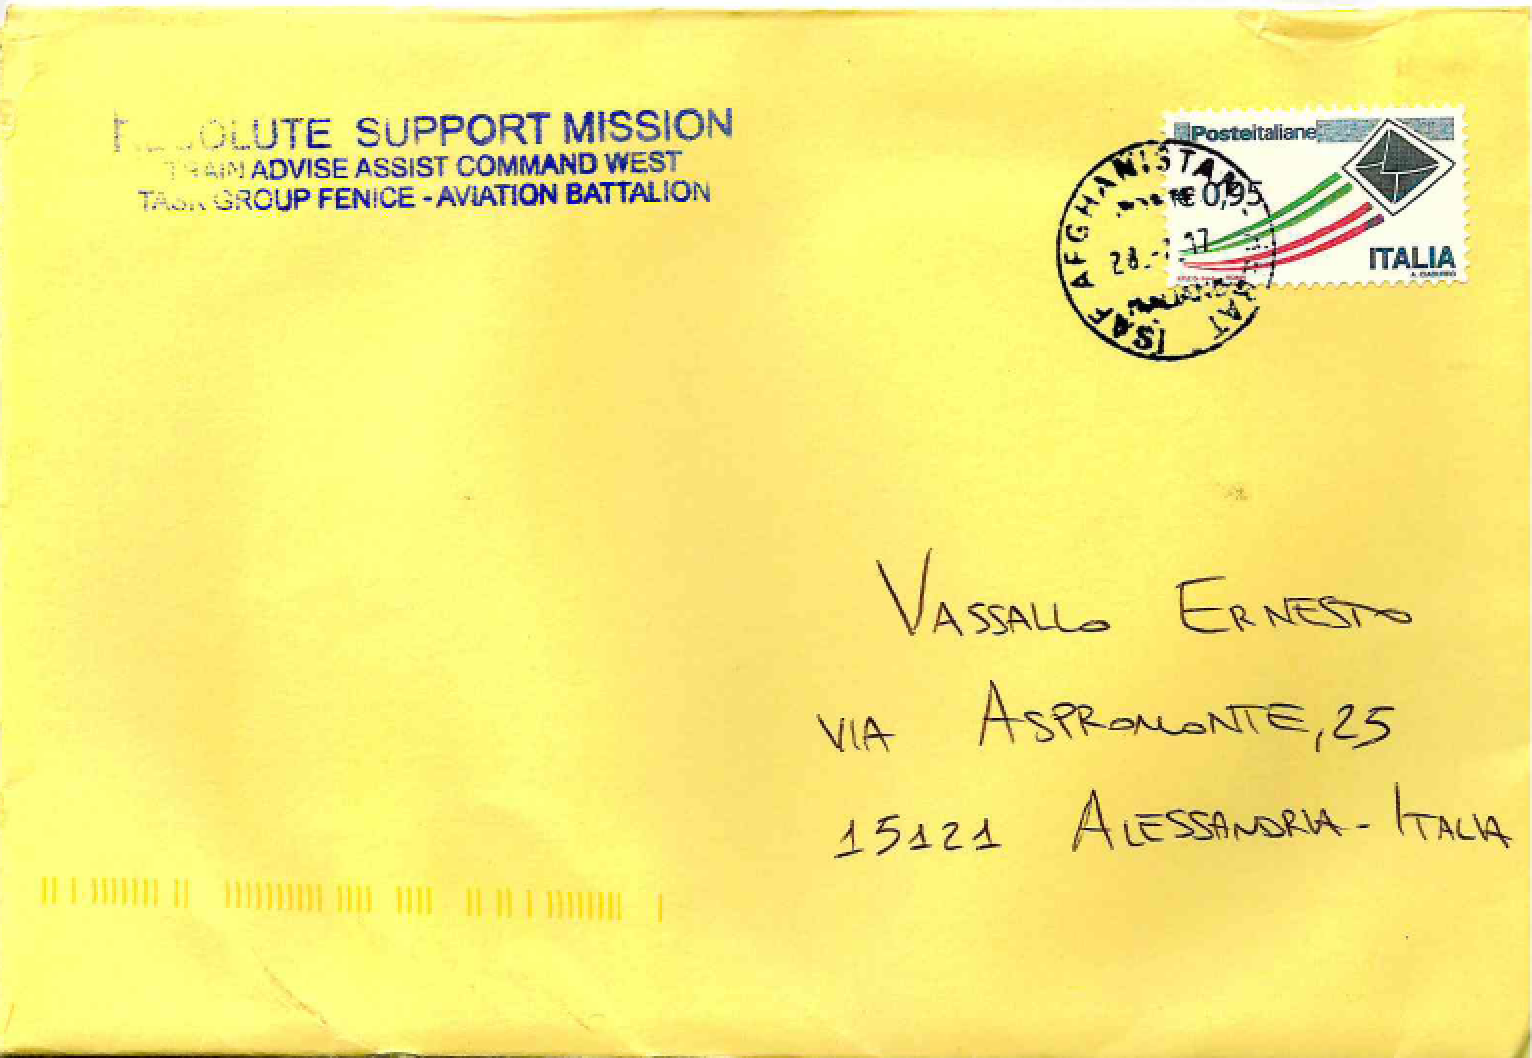 RESOLUTE SUPPORT MISSION
TRAIN ADVISE ASSIST COMMAND WEST
TASK GROUP FENICE - AVIATION BATTALION
Posteitaliane
€ 0,95
ITALIA
ISAF AFGHANISTAN
VASSALLO ERNESTO
VIA ASPROMONTE, 25
15121 ALESSANDRIA - ITALIA